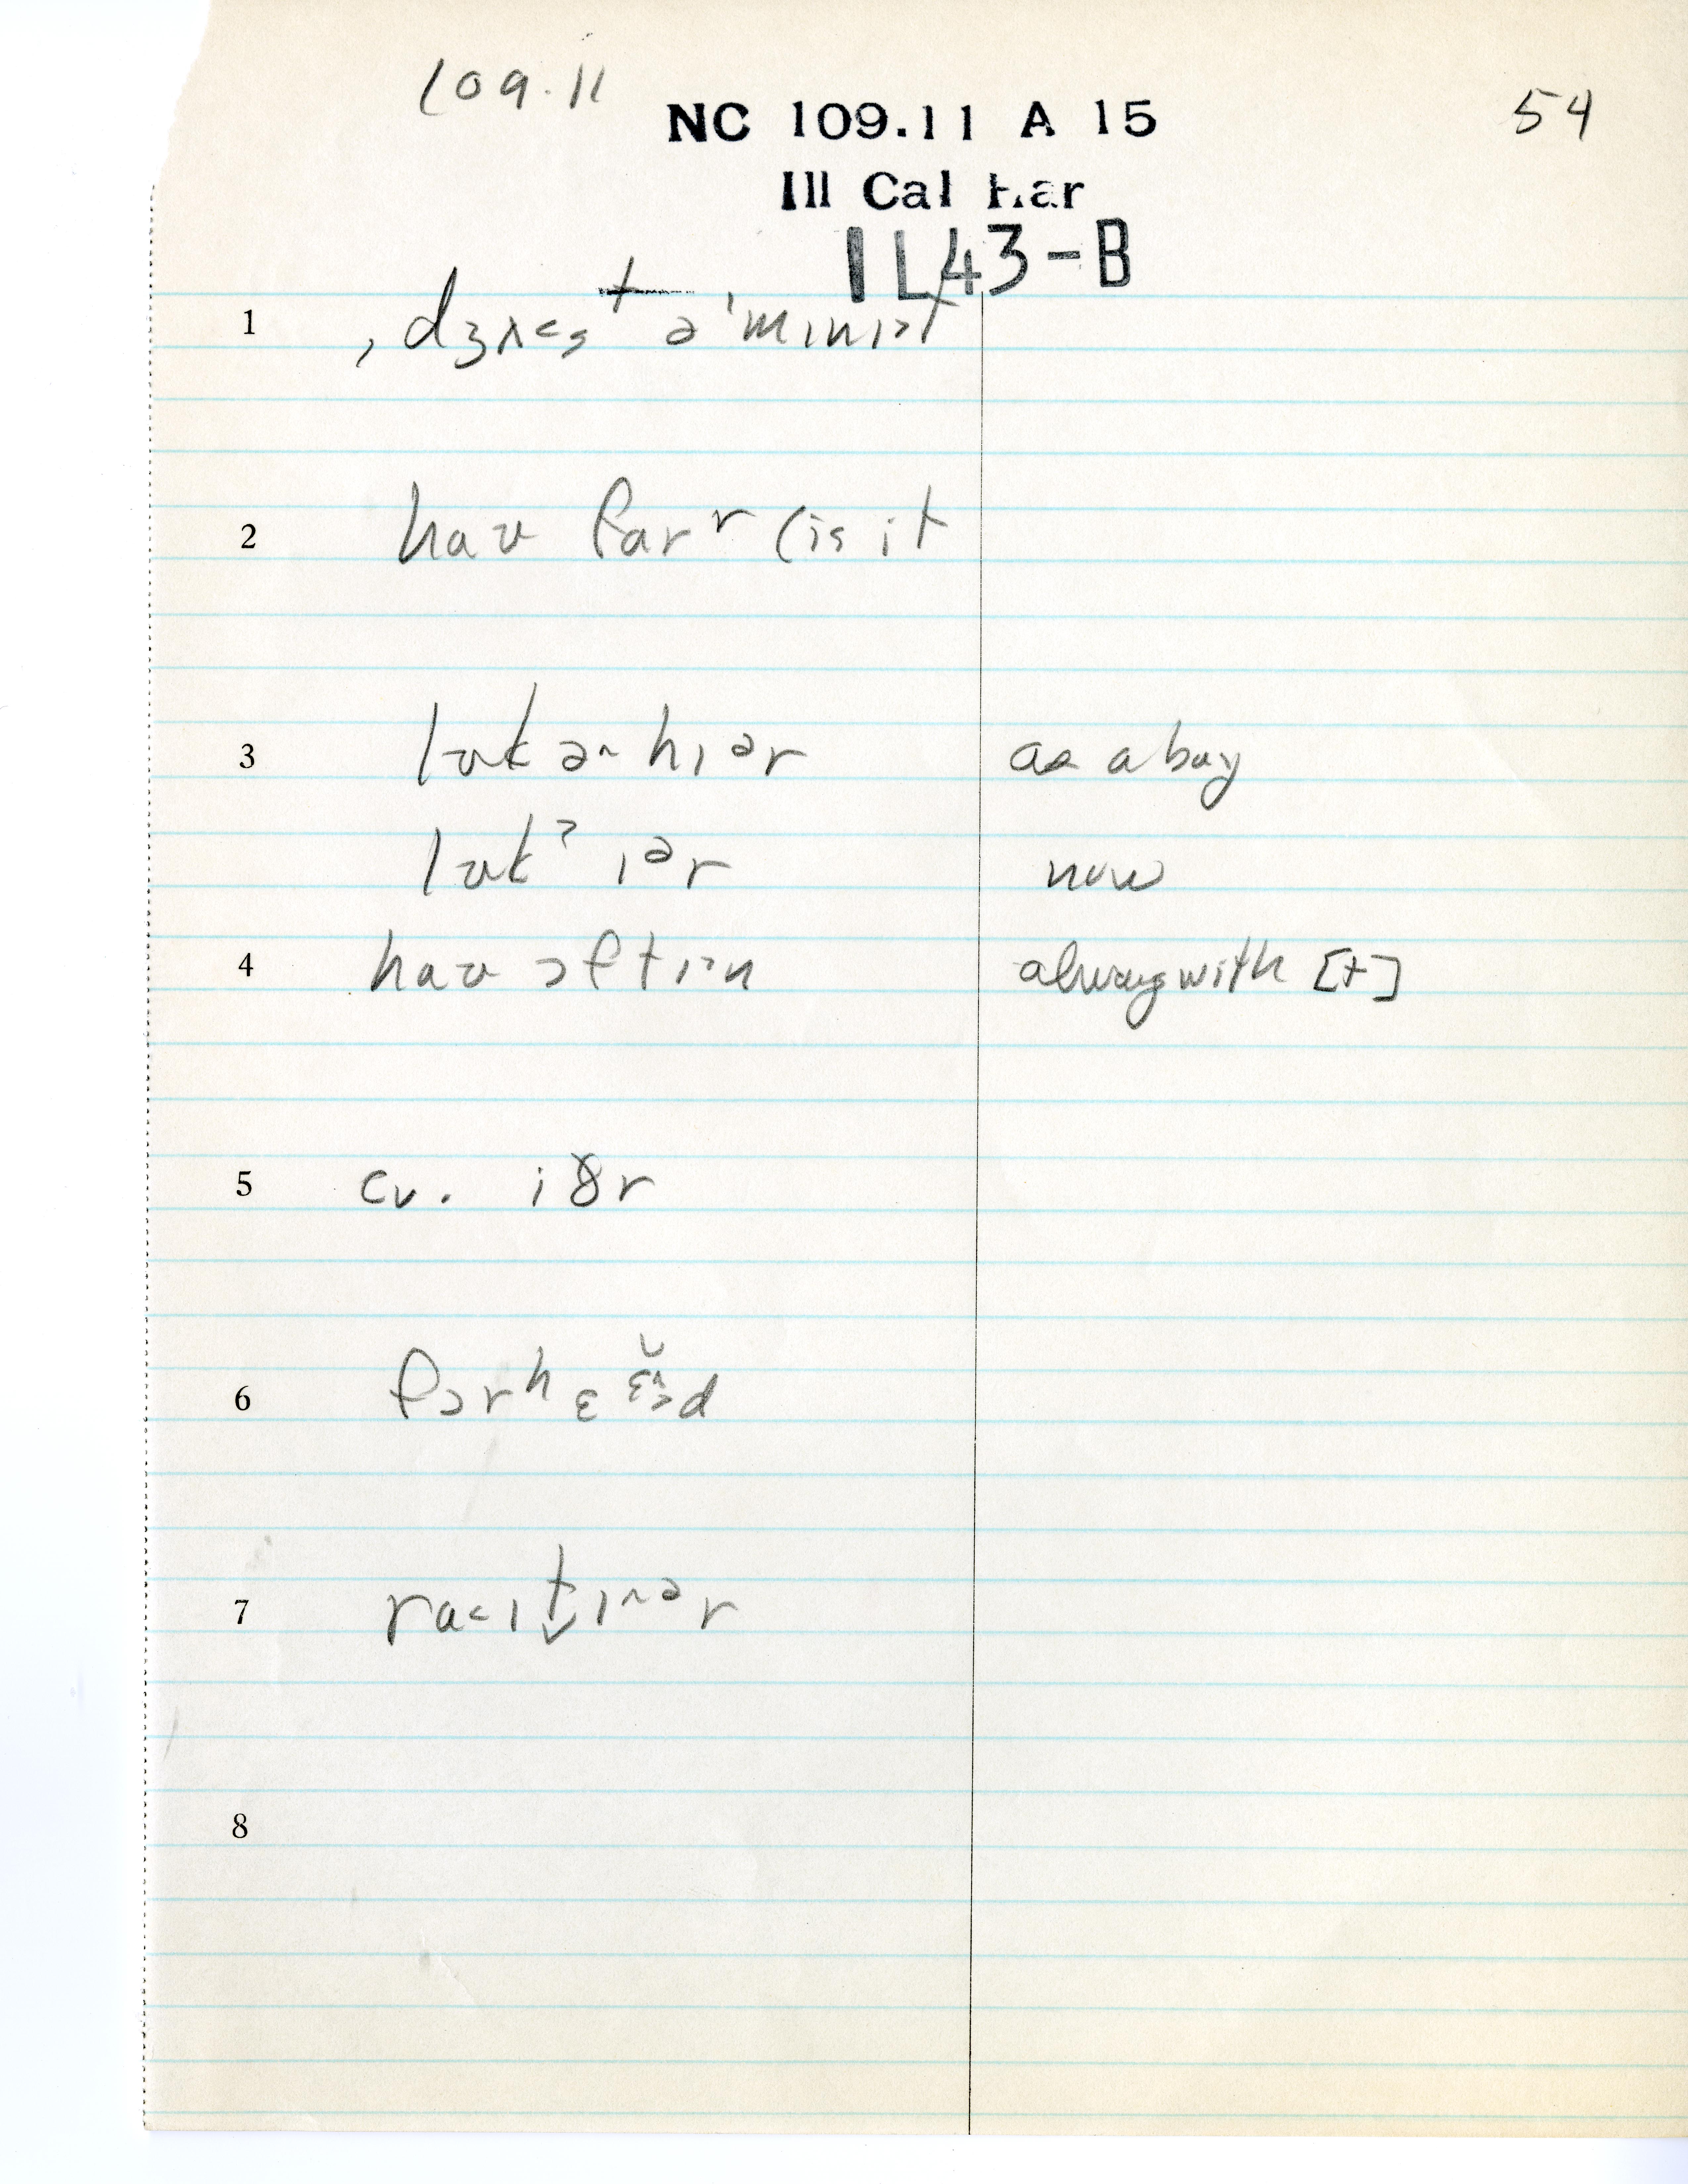 109.11
NC 109.11 A 15
54
Ill Cal Har
IL43-B
1 ˌdʒʌ<sᵗ ə'mɪnɪt
2 haʊ farʳ (is it
3 lʊk ə~hɪər as a boy
lʊkˀ ɪər now
4 haʊ ɔftɪ~n always with [t]
5 cv. iðr
6 fɔrhɛ
7 ra<ɪt̬ɪ~ər
8